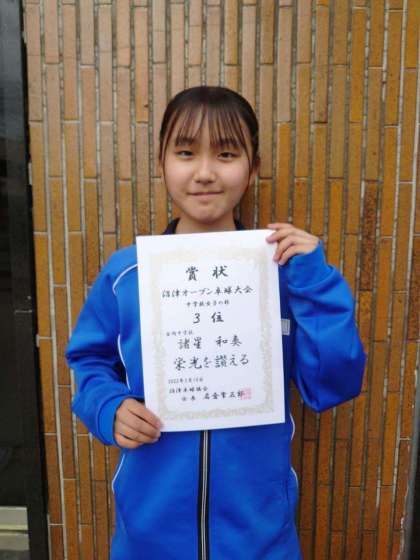 賞状
沼津オープン卓球大会
中学校女子の部
3位
金岡中学校
諸星 和奏
栄光を讃える
2022年3月13日
沼津卓球協会
会長